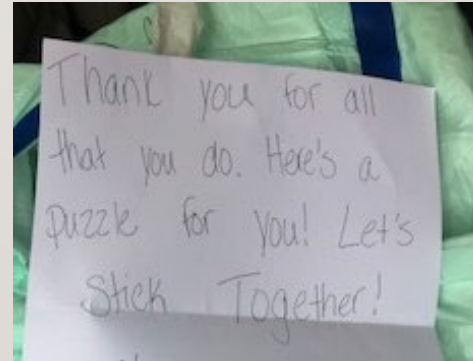 Thank you for all
that you do. Here's a
puzzle for you! Let's
Stick Together!